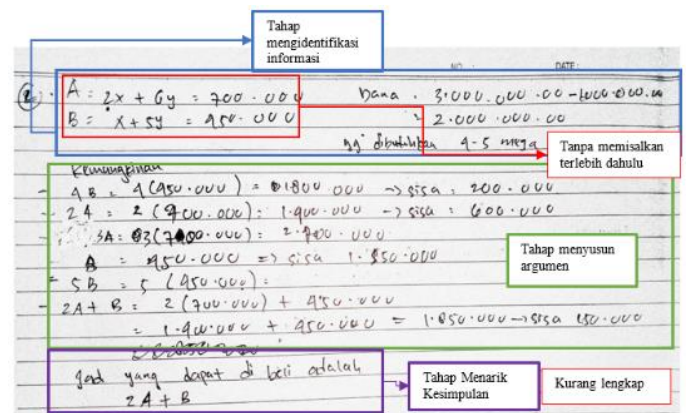 Tahap
mengidentifikasi
informasi
NO : DATE:
2. A = 2x + 6y = 700.000 Dana . 3.000.000.00 - 1.000.000.00
B = x + 5y = 450.000 = 2.000.000.00
yg dibutuhkan 4-5 meja
Tanpa memisalkan
terlebih dahulu
Kemungkinan
- 4B = 4(450.000) = 1.800.000 -> sisa : 200.000
- 2A = 2(700.000) = 1.400.000 -> sisa : 600.000
3A = 3(700.000) = 2.100.000
B = 450.000 => sisa 1.550.000
- 5B = 5(450.000) =
- 2A + B = 2(700.000) + 450.000
= 1.400.000 + 450.000 = 1.850.000 -> sisa 150.000
Tahap menyusun
argumen
Jadi yang dapat di beli adalah
2A + B
Tahap Menarik
Kesimpulan
Kurang lengkap